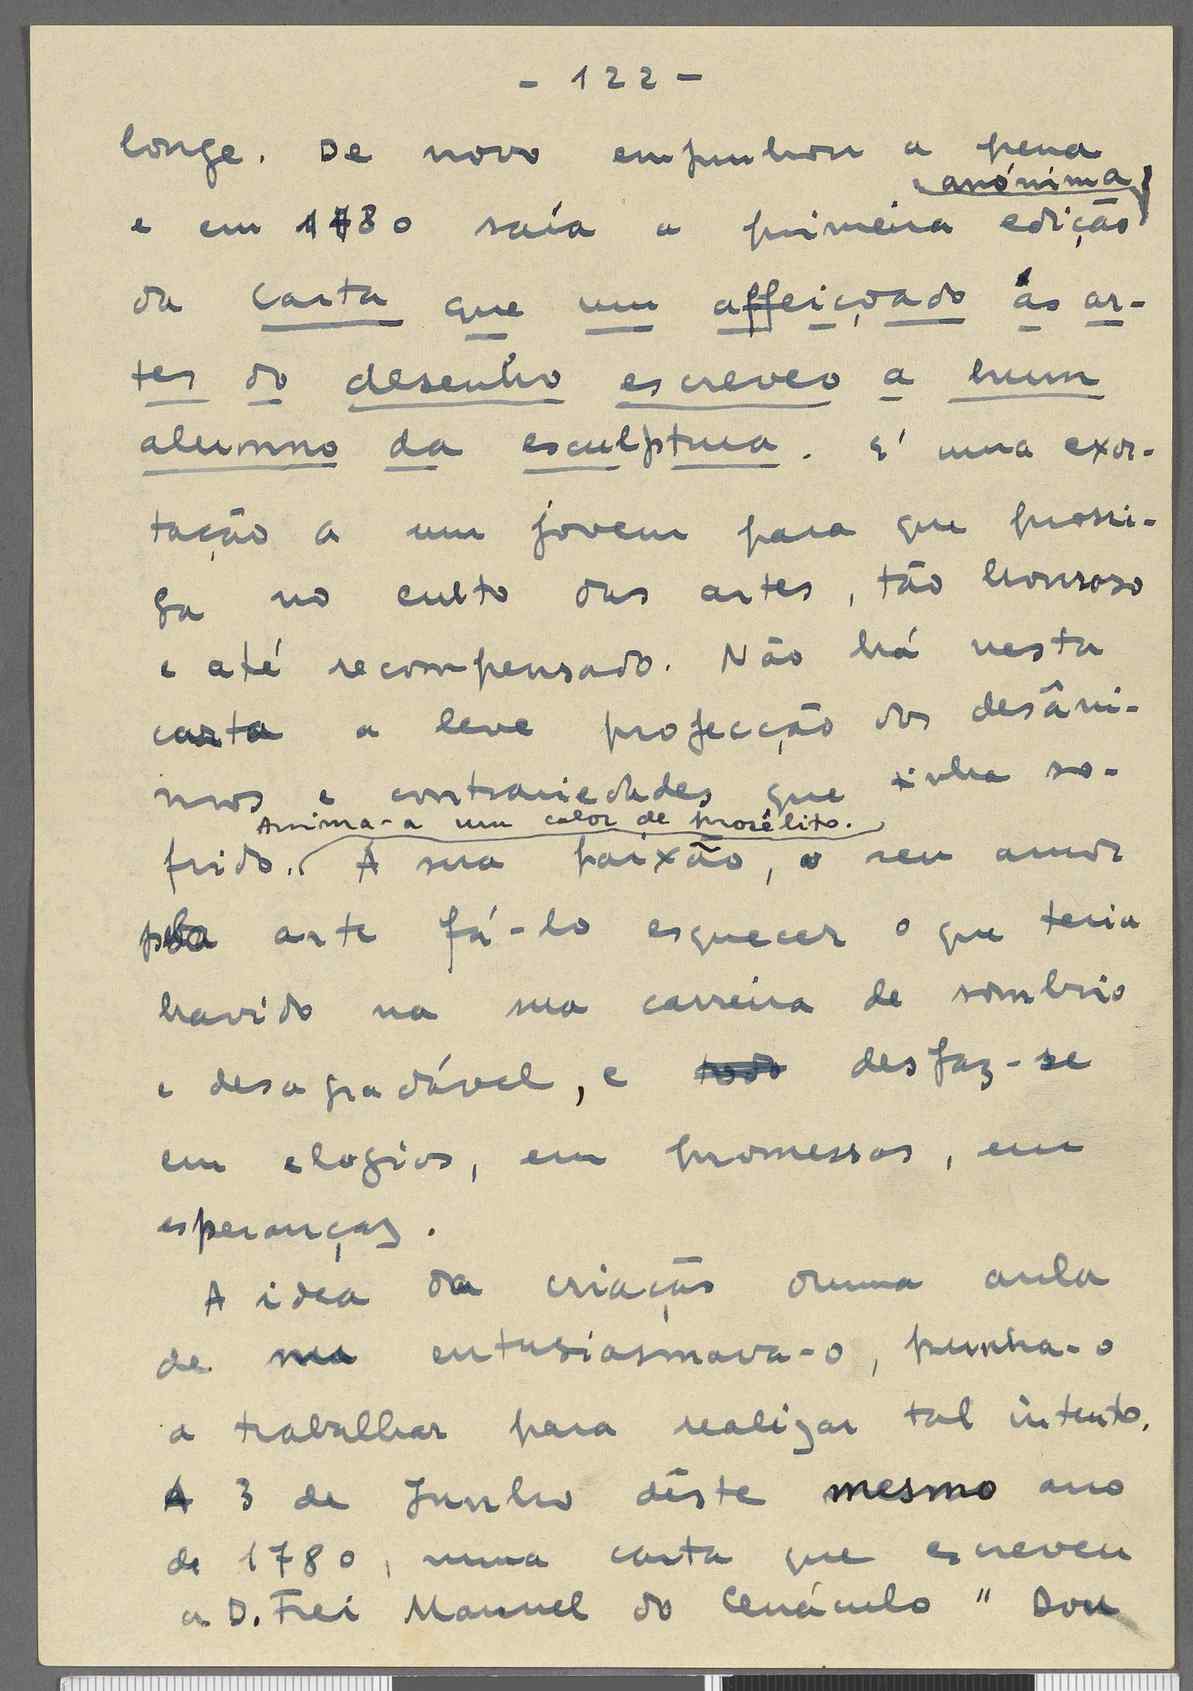 - 122 -
longe. De novo empunhou a pena
anónima
e em 1780 saía a primeira edição
da Carta que um affeiçoado ás ar-
tes do desenho escreveo a hum
alumno da esculptura. E' uma exor-
tação a um jovem para que prossi-
ga no culto das artes, tão honroso
e até recompensado. Não há nesta
carta a leve projecção dos desâni-
mos e contrariedades que tinha so-
Anima-a um calor de prosélito.
frido. A sua paixão, o seu amor
pela arte fá-lo esquecer o que teria
havido na sua carreira de sombrio
e desagradável, e todo desfaz-se
em elogios, em promessas, em
esperanças.
A idea da criação duma aula
de nu entusiasmava-o, punha-o
a trabalhar para realizar tal intento.
A 3 de Junho dêste mesmo ano
de 1780, numa carta que escreveu
a D. Frei Manuel do Cenáculo " Dou